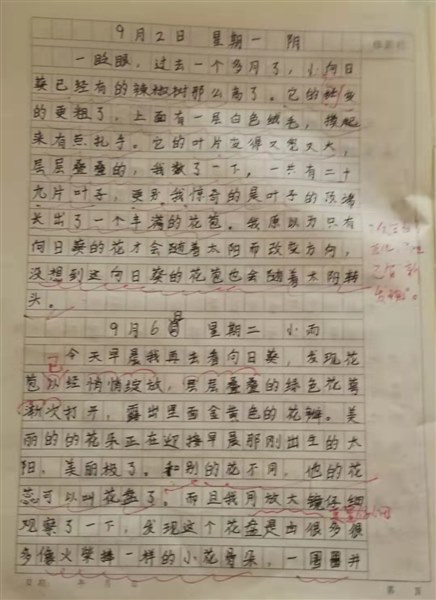 9月2日 星期一 阴
一眨眼，过去一个多月了，小向日
葵已经有的辣椒树那么高了。它的杜变
的更粗了，上面有一层白色绒毛，摸起
来有点扎手。它的叶片变得又宽又大，
层层叠叠的，我数了一下，一共有二十
九片叶子，更别我惊奇的是叶子的顶端
长出了一个丰满的花苞。我原以为只有
向日葵的花才会随着太阳而改变方向，
没想到这向日葵的花苞也会随着太阳转
头。
9月6日 星期二 小雨
今天早晨我再去看向日葵，发现花
苞以经悄悄绽放，层层叠叠的绿色花萼
渐次打开，露出里面金黄色的花瓣。美
丽的的花朵正在迎接早晨那刚出生的太
阳，美丽极了。和别的花不同，他的花
蕊可以叫花盘了。而且我用放大镜仔细
观察了一下，发现这个花盘是由很多很
多像火柴棒一样的小花骨朵，一圈圈并
已